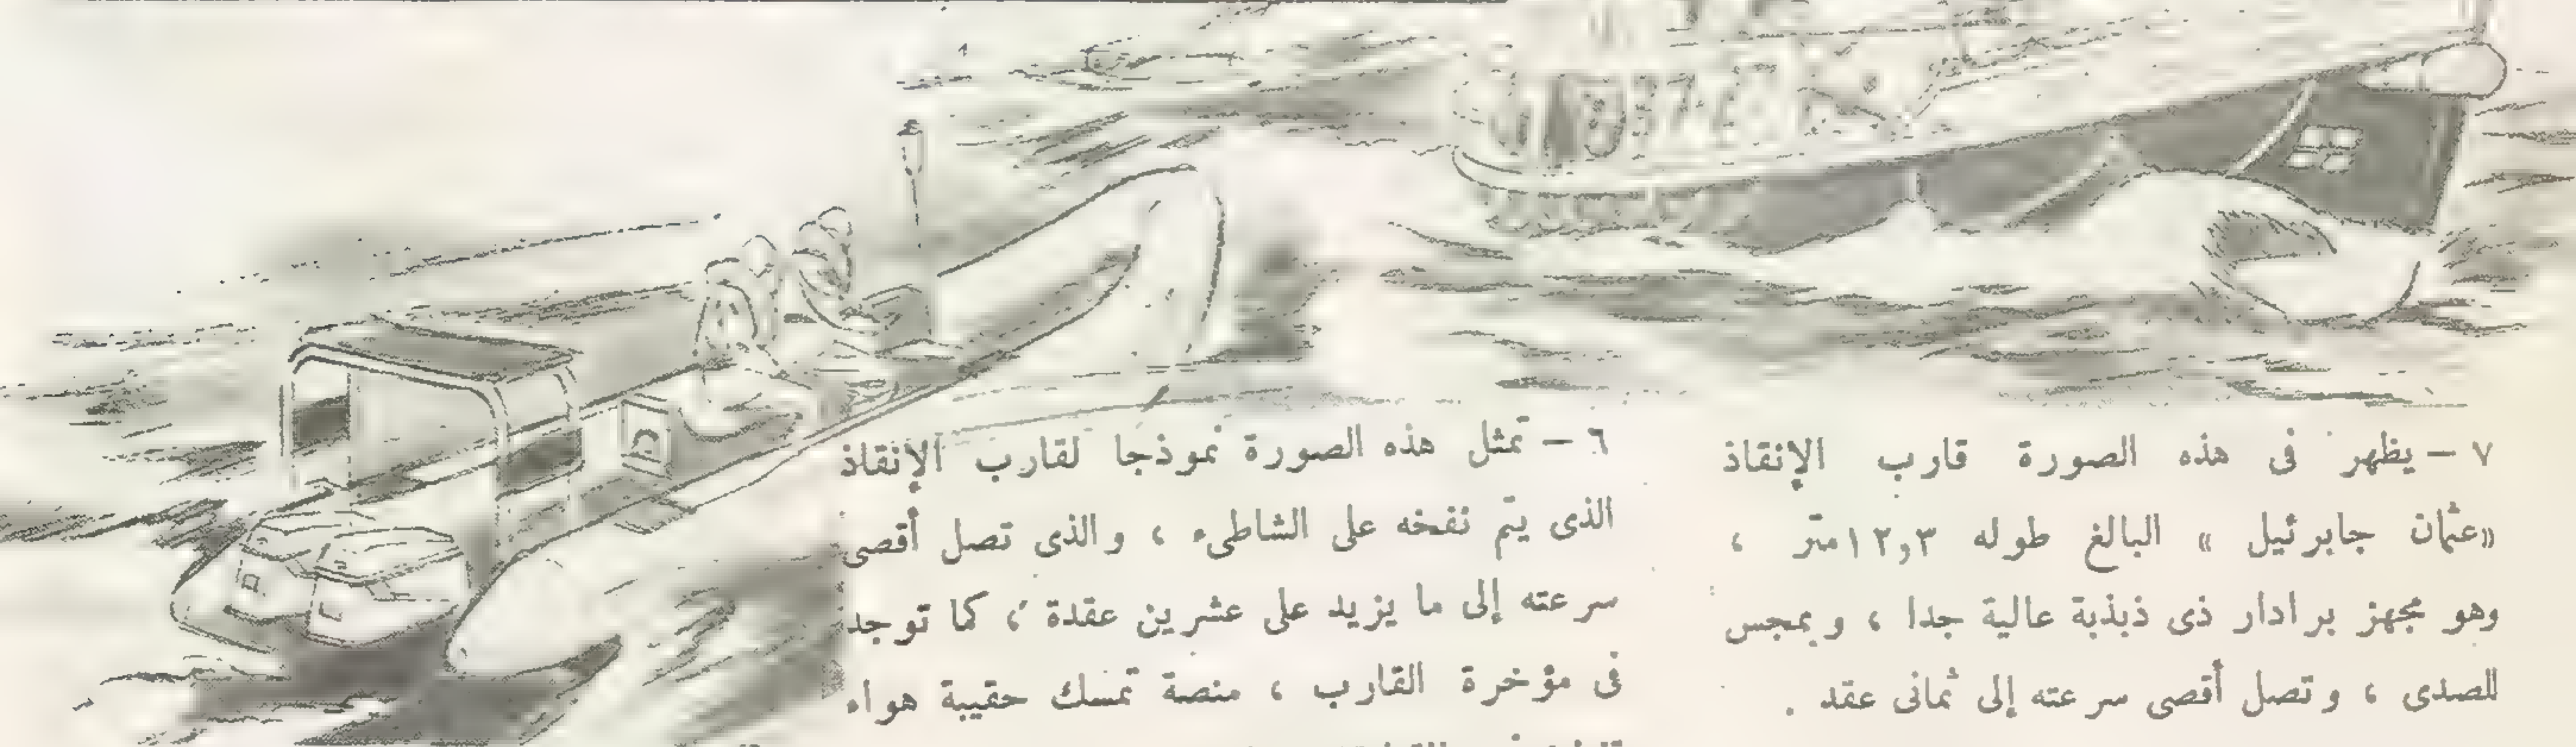 ٧ – يظهر فى هذه الصورة قارب الإنقاذ
«عثمان جابرئيل » البالغ طوله ١٢,٣متر ،
وهو مجهز برادار ذى ذبذبة عالية جدا ، وبمجس
للصدى ، وتصل أقصى سرعته إلى ثمانى عقد .
٦ – تمثل هذه الصورة نموذجا لقارب الإنقاذ
الذى يتم نفخه على الشاطىء ، والذى تصل أقصى
سرعته إلى ما يزيد على عشرين عقدة ، كما توجد
فى مؤخرة القارب ، منصة تمسك حقيبة هواء